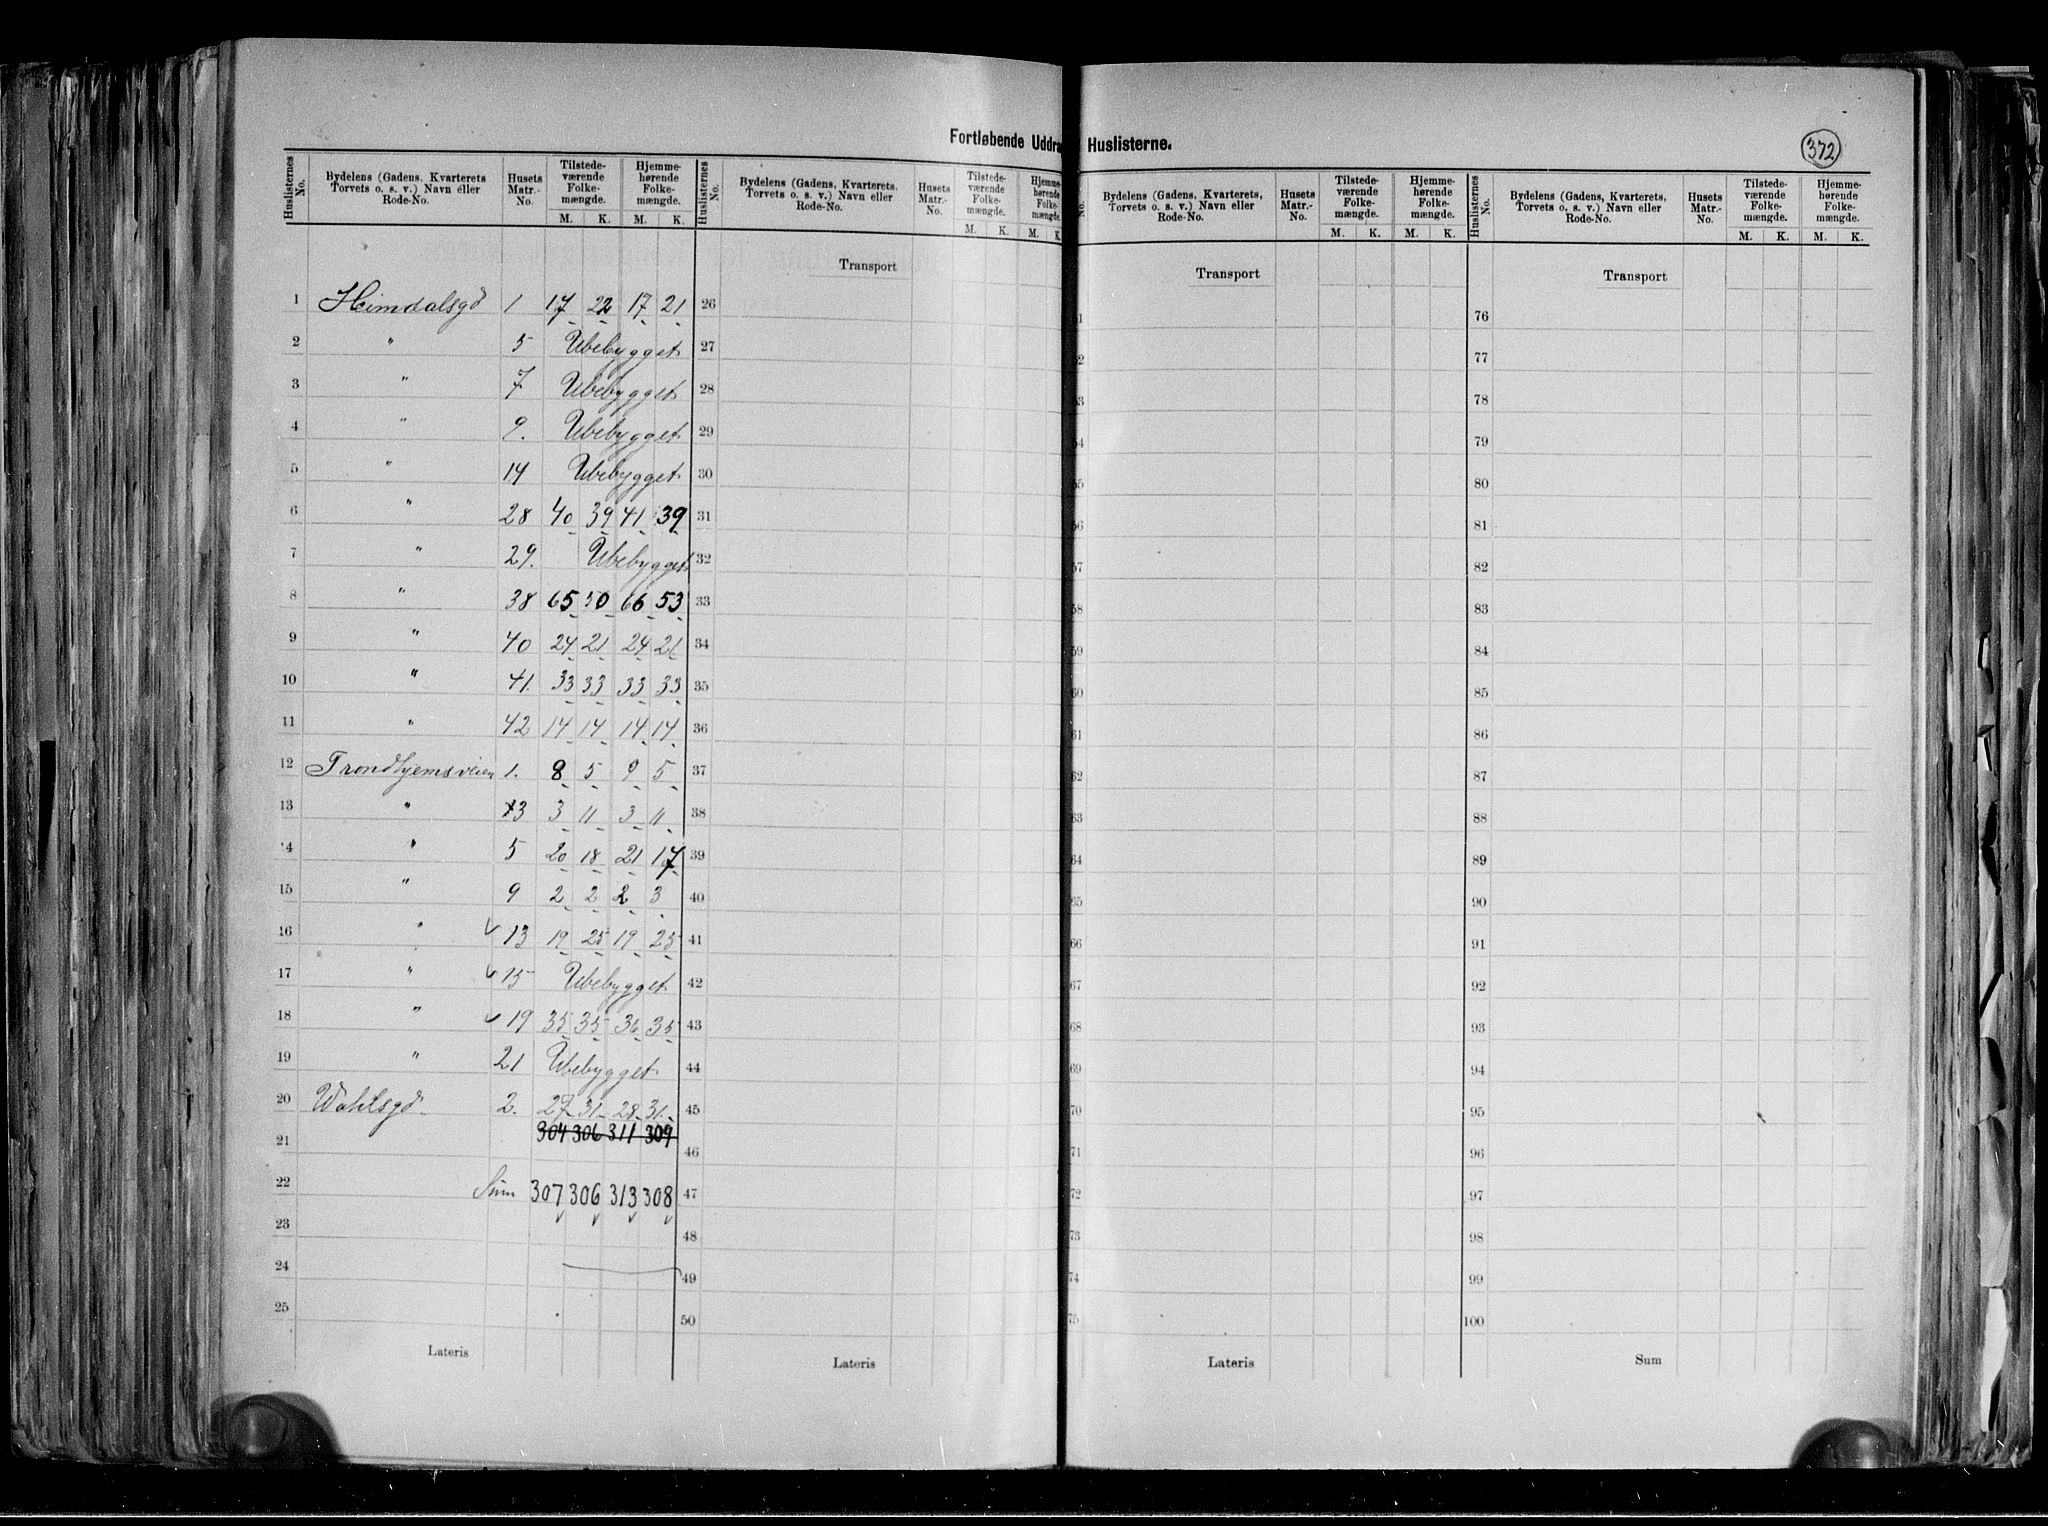 Fortløbende Uddra Huslisterne.
372
Huslisternes No. Bydelens (Gadens, Kvarterets Torvets o. s. v.) Navn eller Rode-No. Husets Matr.-No. Tilstede-værende Folke-mængde. M. K. Hjemme-hørende Folke-mængde. M. K.
1 Heimdalsgd 1 17 22 17 21
2 " 5 Ubebygget
3 " 7 Ubebygget
4 " 9. Ubebygget
5 " 14 Ubebygget
6 " 28 40 39 41 39
7 " 29. Ubebygget
8 " 38 65 50 66 53
9 " 40 24 21 24 21
10 " 41. 33 33 33 33
11 " 42 14 14 14 14
12 Trondhjemsveien 1. 8 5 9 5
13 " 3 3 11 3 11
14 " 5 20 18 21 17
15 " 9 2 2 2 3
16 " 13 19 25 19 25
17 " 15 Ubebygget
18 " 19 35 35 36 35
19 " 21 Ubebygget
20 Wahlsgd. 2. 27 31 28 31
21 304 306 311 309
22 Sum 307 306 313 308
23
24
25
Lateris
Huslisternes No. Bydelens (Gadens, Kvarterets, Torvets o. s. v.) Navn eller Rode-No. Husets Matr.-No. Tilstede-værende Folke-mængde. M. K. Hjemme-hørende Folke-mængde. M. K.
Transport
26
27
28
29
30
31
32
33
34
35
36
37
38
39
40
41
42
43
44
45
46
47
48
49
50
Lateris
No. Bydelens (Gadens, Kvarterets, Torvets o. s. v.) Navn eller Rode-No. Husets Matr.-No. Tilstede-værende Folke-mængde. M. K. Hjemme-hørende Folke-mængde. M. K.
Transport
1
52
53
54
55
56
57
58
59
60
61
62
63
64
65
66
67
68
69
70
71
72
73
74
75
Lateris
Huslisternes No. Bydelens (Gadens, Kvarterets, Torvets o. s. v.) Navn eller Rode-No. Husets Matr.-No. Tilstede-værende Folke-mængde. M. K. Hjemme-hørende Folke-mængde. M. K.
Transport
76
77
78
79
80
81
82
83
84
85
86
87
88
89
90
91
92
93
94
95
96
97
98
99
100
Sum